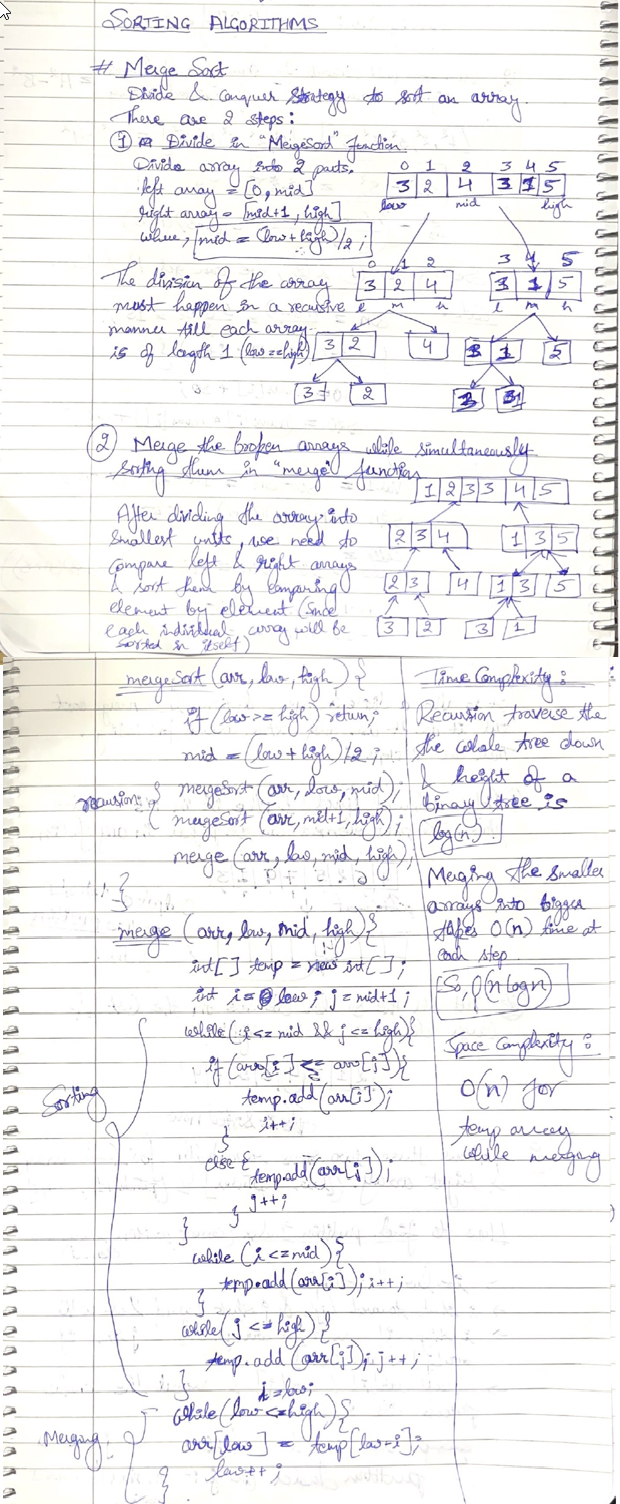 SORTING ALGORITHMS
# Merge Sort
Divide & Conquer Strategy to sort an array.
There are 2 steps:
① Divide in "MergeSort" function.
Divide array into 2 parts.
left array = [0, mid]
right array = [mid+1, high]
where, mid = (low+high)/2 ;
0 1 2 3 4 5
3 2 4 3 1 5
low mid high
The division of the array
must happen in a recursive
manner till each array
is of length 1 (low==high)
0 1 2 3 4 5
3 2 4 3 1 5
l m h l m h
3 2 4 3 1 5
3 2 3 1
② Merge the broken arrays while simultaneously
sorting them in "merge" function
After dividing the array into
smallest units, we need to
compare left & right arrays
& sort them by comparing
element by element (Since
each individual array will be
sorted in itself)
1 2 3 3 4 5
2 3 4 1 3 5
2 3 4 1 3 5
3 2 3 1
mergeSort (arr, low, high) {
if (low >= high) return;
mid = (low + high)/2 ;
recursion { mergeSort (arr, low, mid);
mergeSort (arr, mid+1, high);
merge (arr, low, mid, high);
}
merge (arr, low, mid, high){
int[] temp = new int[];
int i = low; j = mid+1 ;
Sorting
while (i <= mid && j <= high){
if (arr[i] <= arr[j]){
temp.add(arr[i]);
i++;
}
else {
temp.add(arr[j]);
j++;
}
}
while (i <= mid) {
temp.add(arr[i]); i++;
}
while (j <= high) {
temp.add (arr[j]); j++;
}
i = low;
Merging
while (low <= high) {
arr[low] = temp[low-i];
low++ ;
}
Time Complexity :
Recursion traverse the
the whole tree down
& height of a
binary tree is
log(n)
Merging the smaller
arrays into bigger
takes O(n) time at
each step.
So, O(n logn)
Space Complexity :
O(n) for
temp array
while merging